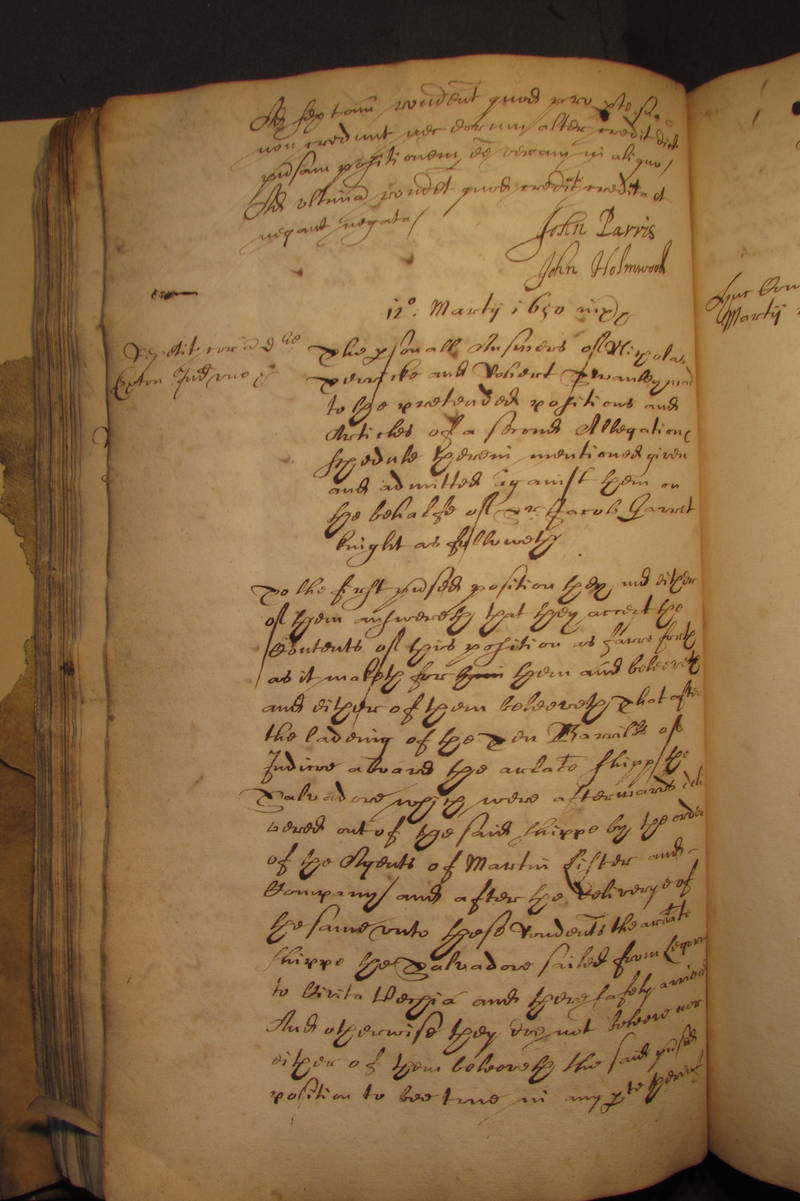 Ad septam rondent quod pro parte sua
non credunt nec eorum alter credit dict
pnsam positionem esse veram in aliquo /
Ad ultimam rondet quod credit credita et
negant negata /
John Parris
John Holmwood
12°. Martij 1650
The psonall Answers of Nicholas
and Robert Swanley made
to the pretended positions and
Articles of a second Allegation &
schedule therein mentioned given
and admitted against them on
the behalfe of Sr. Jacob Garret
knight as followeth
To the first pnsed position they and either
of them answereth that they accept the
Contents of this position as farre forth
as it maketh for them and beleeveth
and either of them beleeveth That after
the ladeing of the Ten Barrills of
Indico aboard the arlate shipp the
Salvadore which were afterwards deli
vered out of the said shippe by the order
of the Agents of Martin Lister and
Company / and after the delivery of
the same unto these Rondents the arlate
shippe the Salvadore sailed from Legorne
to Civita Vechia and there safely arrived
And otherwise they doe not beleeve nor
either of them beleeveth the said pnsed
position to bee true in any pte thereof
Martij